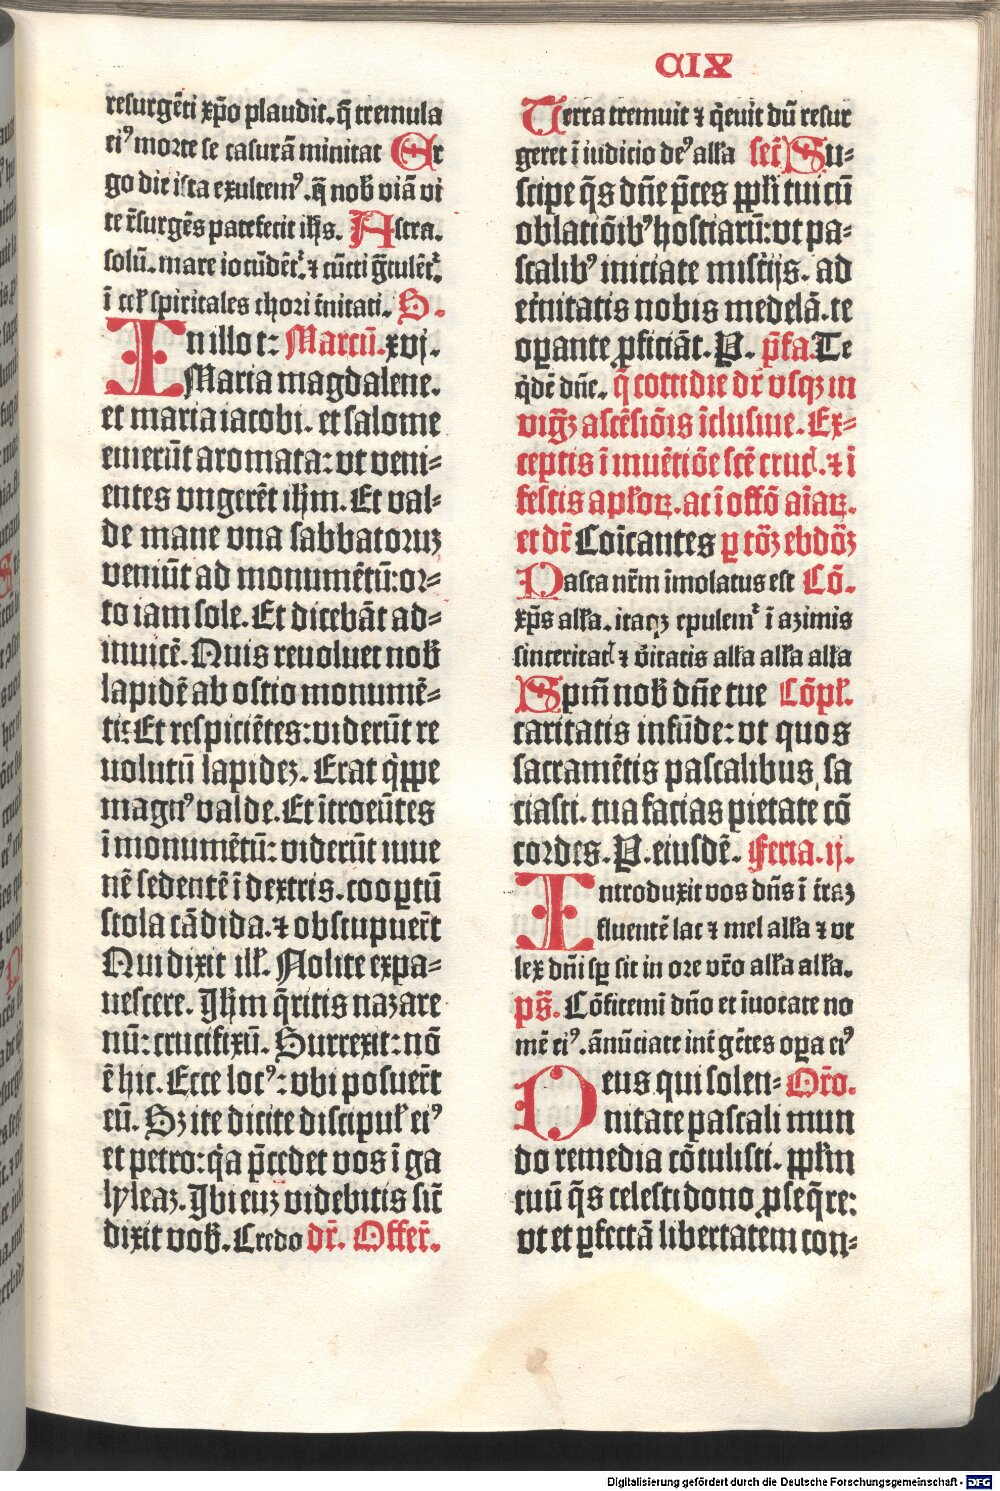 CIX
resurgēti xp̄o plaudit. q̄ tremula
ei⁹ morte se casurā minitat Er
go die ista exultem⁹. q̄ nob̄ viā vi
te r̄surgēs patefecit ih̄s. Astra.
solū. mare iocūdēt᷑. ⁊ cūcti gr̄tulēt᷑.
ī cel̄ spiritales chori t̄nitati. S.
In illo t: Marcū. xvj.
Maria magdalene.
et maria iacobi. et salome
emerūt aromata: vt veni⸗
entes vngerēt ih̄m. Et val⸗
de mane vna sabbatoruꝫ
veniūt ad monumētū: or⸗
to iam sole. Et dicebāt ad⸗
inuicē. Quis reuoluet nob̄
lapidē ab ostio monumē⸗
ti: Et respiciētes: viderūt re
uolutū lapideꝫ. Erat q̄ppe
magn⁹ valde. Et ītroeūtes
ī monumētū: viderūt iuue
nē sedentē ī dextris. cooꝑtū
stola cādida. ⁊ obstupuer̄t
Qui dixit ill̄. Nolite expa⸗
uescere. Jh̄m q̄ritis nazare
nū: crucifixū. Surrexit: nō
ē hic. Ecce loc⁹: vbi posuer̄t
eū. Sꝫ ite dicite discipul̄ ei⁹
et petro: q̄a p̄cedet vos ī ga
lyleaꝫ. Jbi euꝫ videbitis sic̄
dixit vob̄. Credo dr̄. Offer̄.
Terra tremuit ⁊ q̄euit dū resur
geret ī iudicio de⁹ all̄a sec̄ Su⸗
scipe q̄s dn̄e p̄ces ppl̄i tui cū
oblatiōib⁹ hostiarū: vt pa⸗
scalib⁹ iniciate mist̄ijs. ad
et̄nitatis nobis medelā. te
oꝑante ꝓficiāt. P. p̄fa. Te
q̄dē dn̄e. q̄ cottidie dr̄ vsqꝫ in
vigl̄ꝫ ascēsiōis īclusiue. Ex⸗
ceptis ī muētiōe scē cruc̄. ⁊ ī
festis apl̄oꝝ. ac ī offō aīaꝝ.
et dr̄ Coīcantes ꝑ tōꝫ ebdōꝫ
Pasca nr̄m īmolatus est Cō.
xp̄s all̄a. itaqꝫ epulem᷑ ī azimis
sinceritat̄ ⁊ v̄itatis all̄a all̄a all̄a
Spm̄ nob̄ dn̄e tue Cōpl̄.
caritatis infūde: vt quos
sacramētis pascalibus sa
ciasti. tua facias pietate cō
cordes. P. eiusdē. Feria. ij.
Introduxit vos dn̄s ī t̄raꝫ
fluentē lac ⁊ mel all̄a ⁊ vt
lex dn̄i sꝑ sit in ore vr̄o all̄a all̄a.
ps̄. Cōfitemī dn̄o et īuocate no
mē ei⁹. ānūciate int̄ gētes oꝑa ei⁹
Deus qui solen⸗ Or̄o.
nitate pascali mun
do remedia cōtulisti. ppl̄m
tuū q̄s celesti dono ꝓseq̄re:
vt et ꝑfectā libertatem con⸗
Digitalisierung gefördert durch die Deutsche Forschungsgemeinschaft - DFG